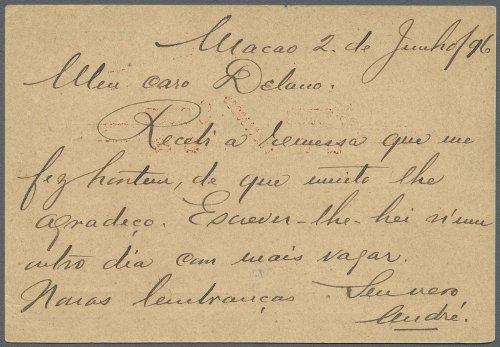 Macao 2. de Junho/96
Meu caro Delano.
Recebi a remessa que me
fez hontem, de que muito lhe
agradeço. Escrever-lhe-hei n'um
outro dia com mais vagar.
Novas lembranças Seu vero
André.